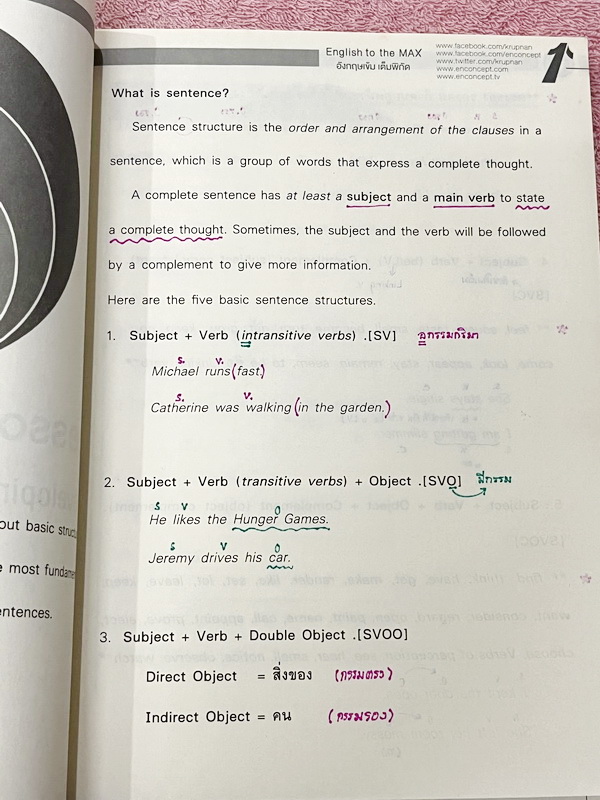 English to the MAX
อังกฤษเข้ม เต็มพิกัด
www.facebook.com/krupnan
www.facebook.com/enconcept
www.twitter.com/krupnan
www.enconcept.com
www.enconcept.tv
1
What is sentence?
Sentence structure is the order and arrangement of the clauses in a
sentence, which is a group of words that express a complete thought.
A complete sentence has at least a subject and a main verb to state
a complete thought. Sometimes, the subject and the verb will be followed
by a complement to give more information.
Here are the five basic sentence structures.
1. Subject + Verb (intransitive verbs) .[SV] อกรรมกริยา
S. V.
Michael runs (fast.)
S. V.
Catherine was walking (in the garden.)
2. Subject + Verb (transitive verbs) + Object .[SVO] มีกรรม
S V O
He likes the Hunger Games.
S V O
Jeremy drives his car.
3. Subject + Verb + Double Object .[SVOO]
Direct Object = สิ่งของ (กรรมตรง)
Indirect Object = คน (กรรมรอง)
out basic
e most
entences.